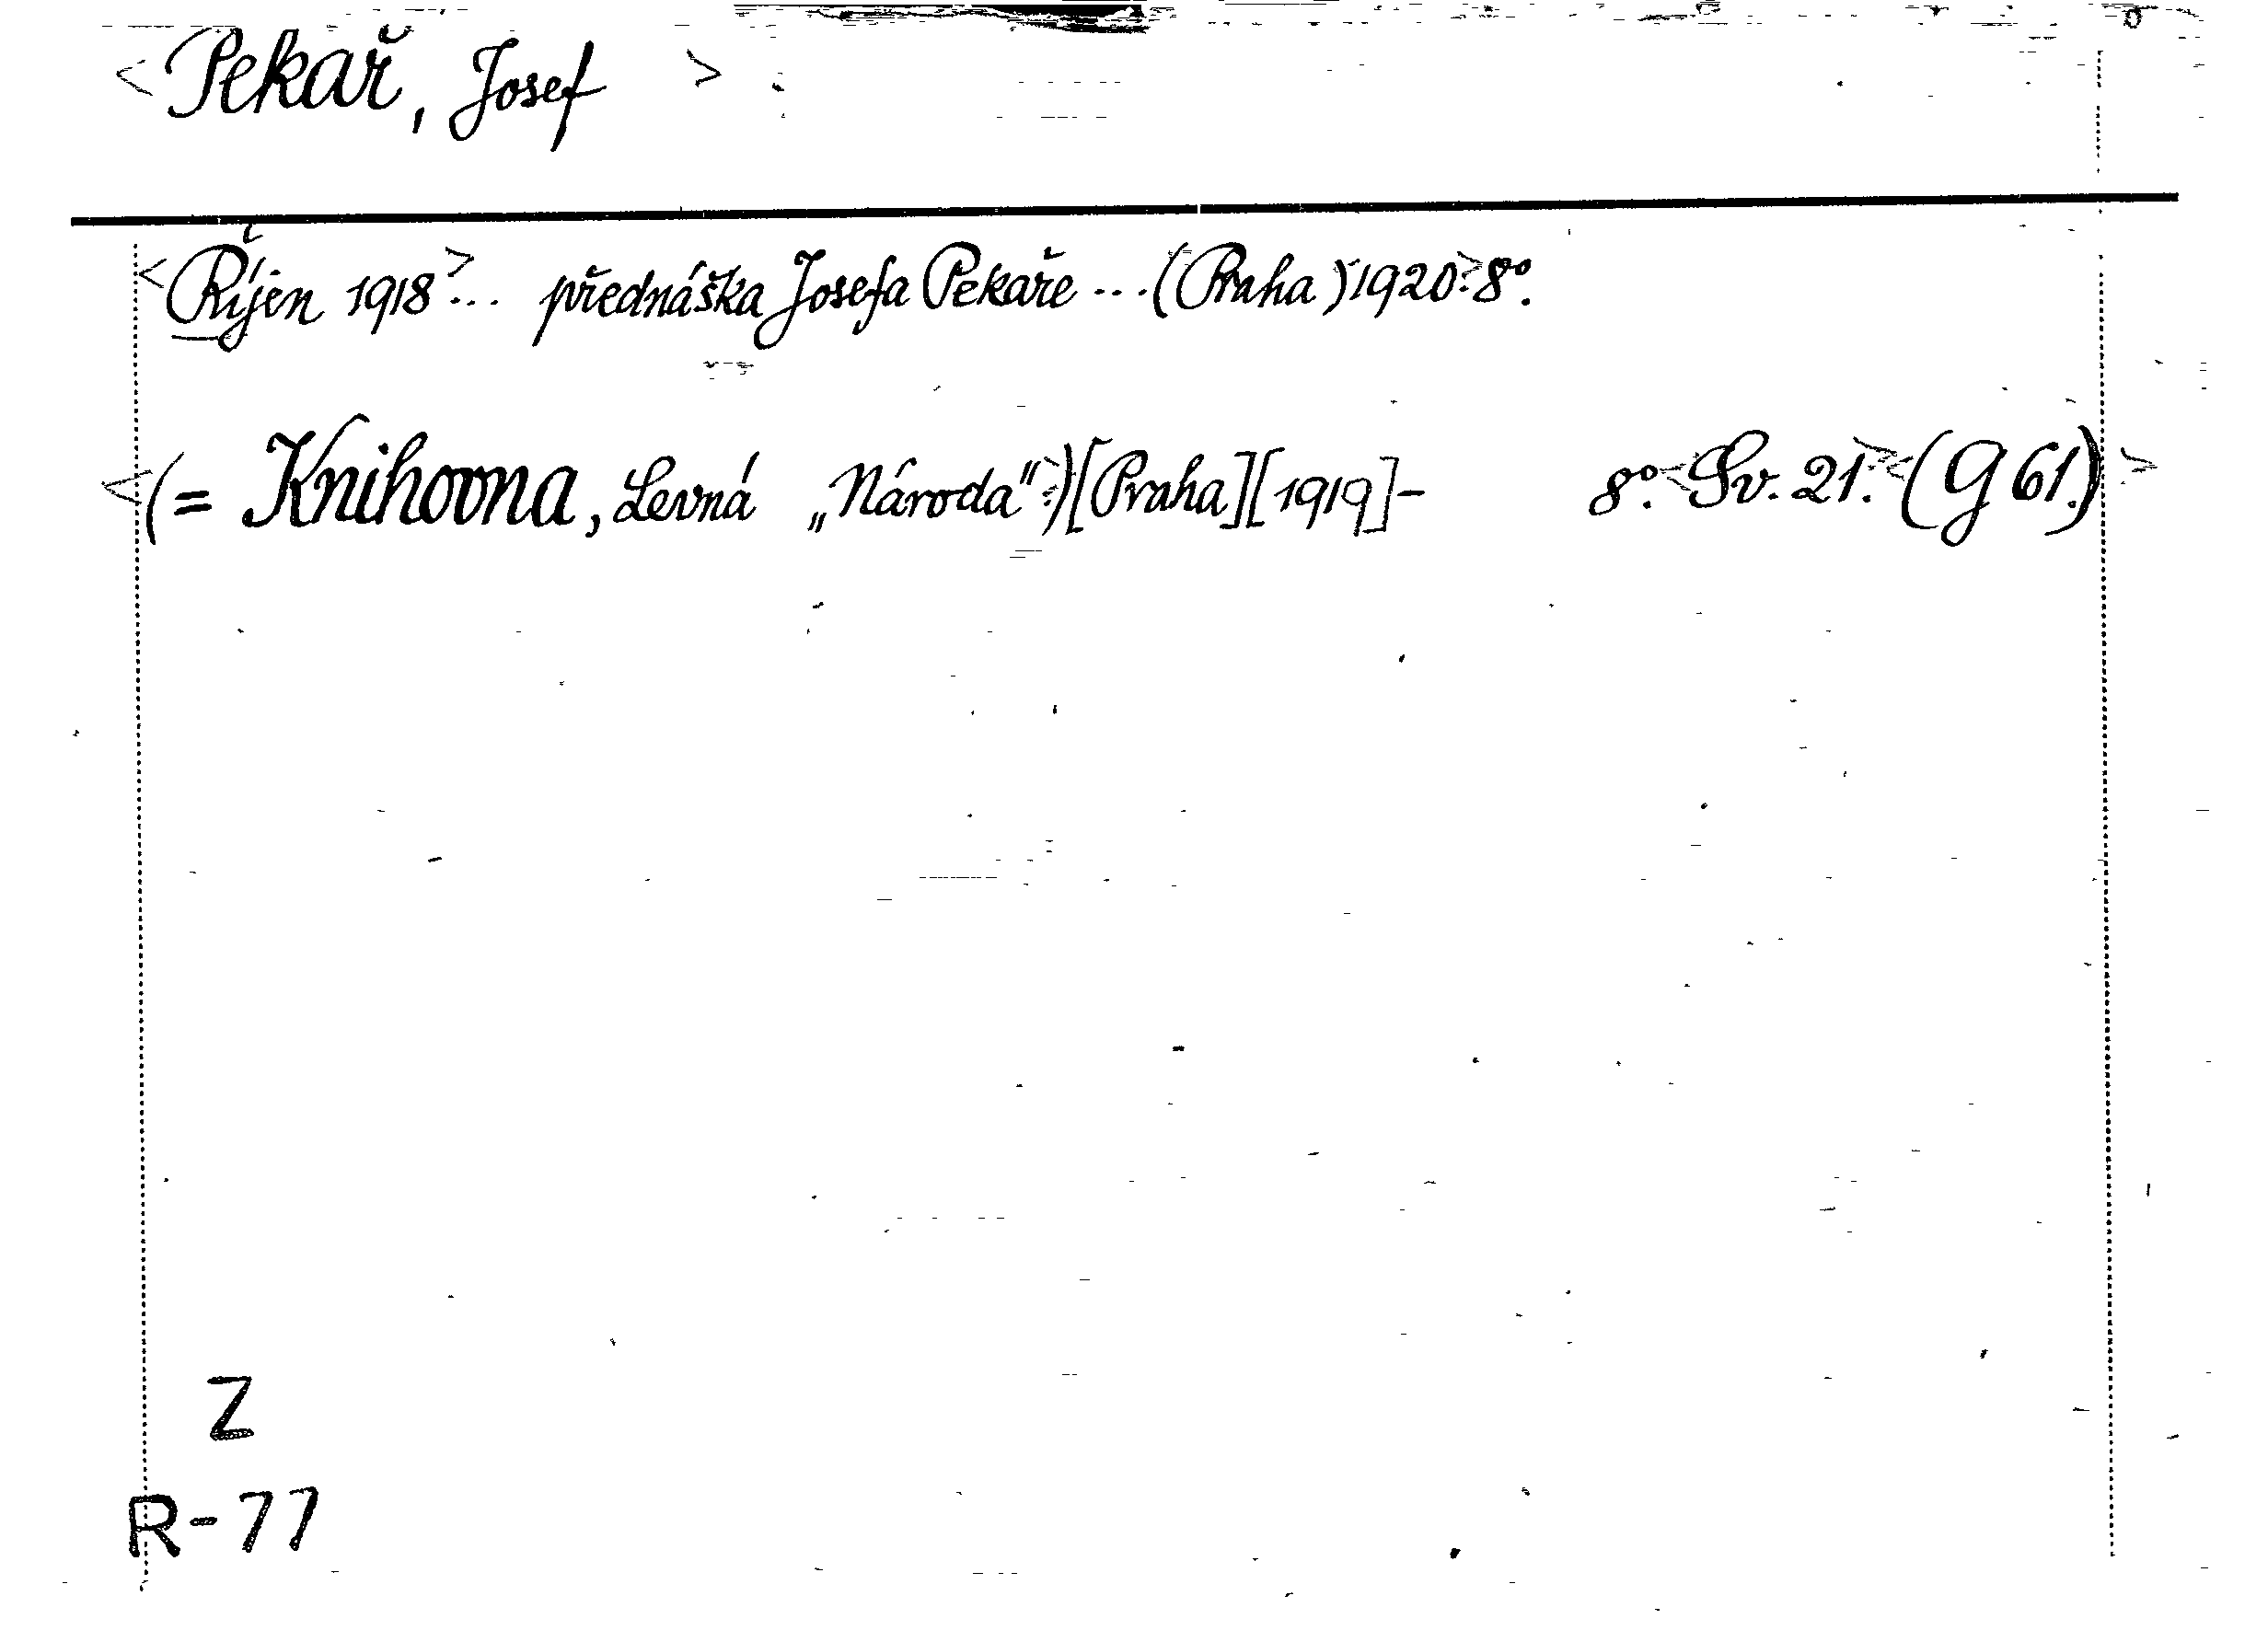 <Pekař, Josef>
<Říjen 1918>... přednáška Josefa Pekaře ... (Praha) 1920.> 8°.
<(= Knihovna, Levná „Národa“.) [Praha] [1919]- 8°. <Sv. 21.> <(G 61.)>
Z
R-77